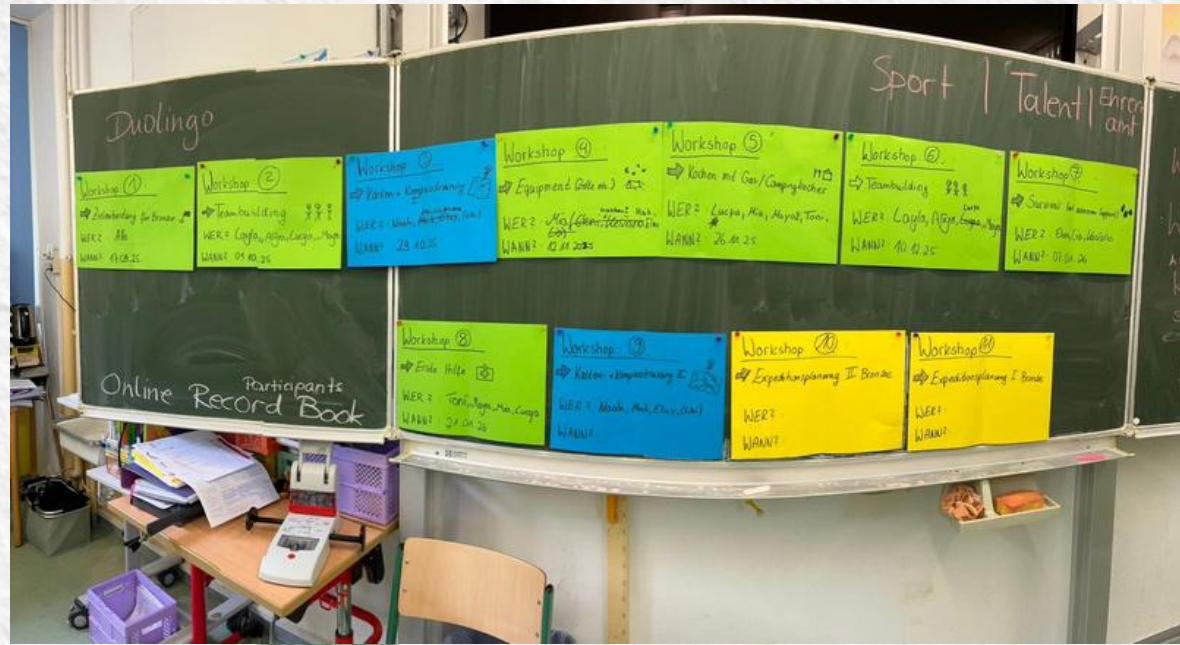 Duolingo
Sport | Talent | Ehren
amt
Workshop 1
für Bronze
WER? Alle
WANN? 17.09.25
Workshop 2
⇒ Teambuilding
WER? Layla, Luepa, Maya
WANN? 01.10.25
Workshop 3
⇒ Karten + Kompasstraining
WER? Noah,
WANN? 29.10.25
Workshop 4
⇒ Equipment (Zelte etc.)
WER? Mia
WANN? 12.11.2025
Workshop 5
⇒ Kochen mit Gas/Campingkocher
WER? Luepa, Mia, Maya, Toni,
WANN? 26.11.25
Workshop 6
⇒ Teambuilding
WER? Layla,
WANN? 10.12.25
Workshop 7
⇒ Survival
WER?
WANN? 07.01.26
Workshop 8
⇒ Erste Hilfe
WER? Toni, Maya, Mia, Luepa
WANN? 21.01.26
Workshop 9
⇒ Karten- + Kompasstraining II
WER? Noah,
WANN?
Workshop 10
⇒ Expeditionsplanung II Bronze
WER?
WANN?
Workshop 11
⇒ Expeditionsplanung I Bronze
WER?
WANN?
Participants
Online Record Book